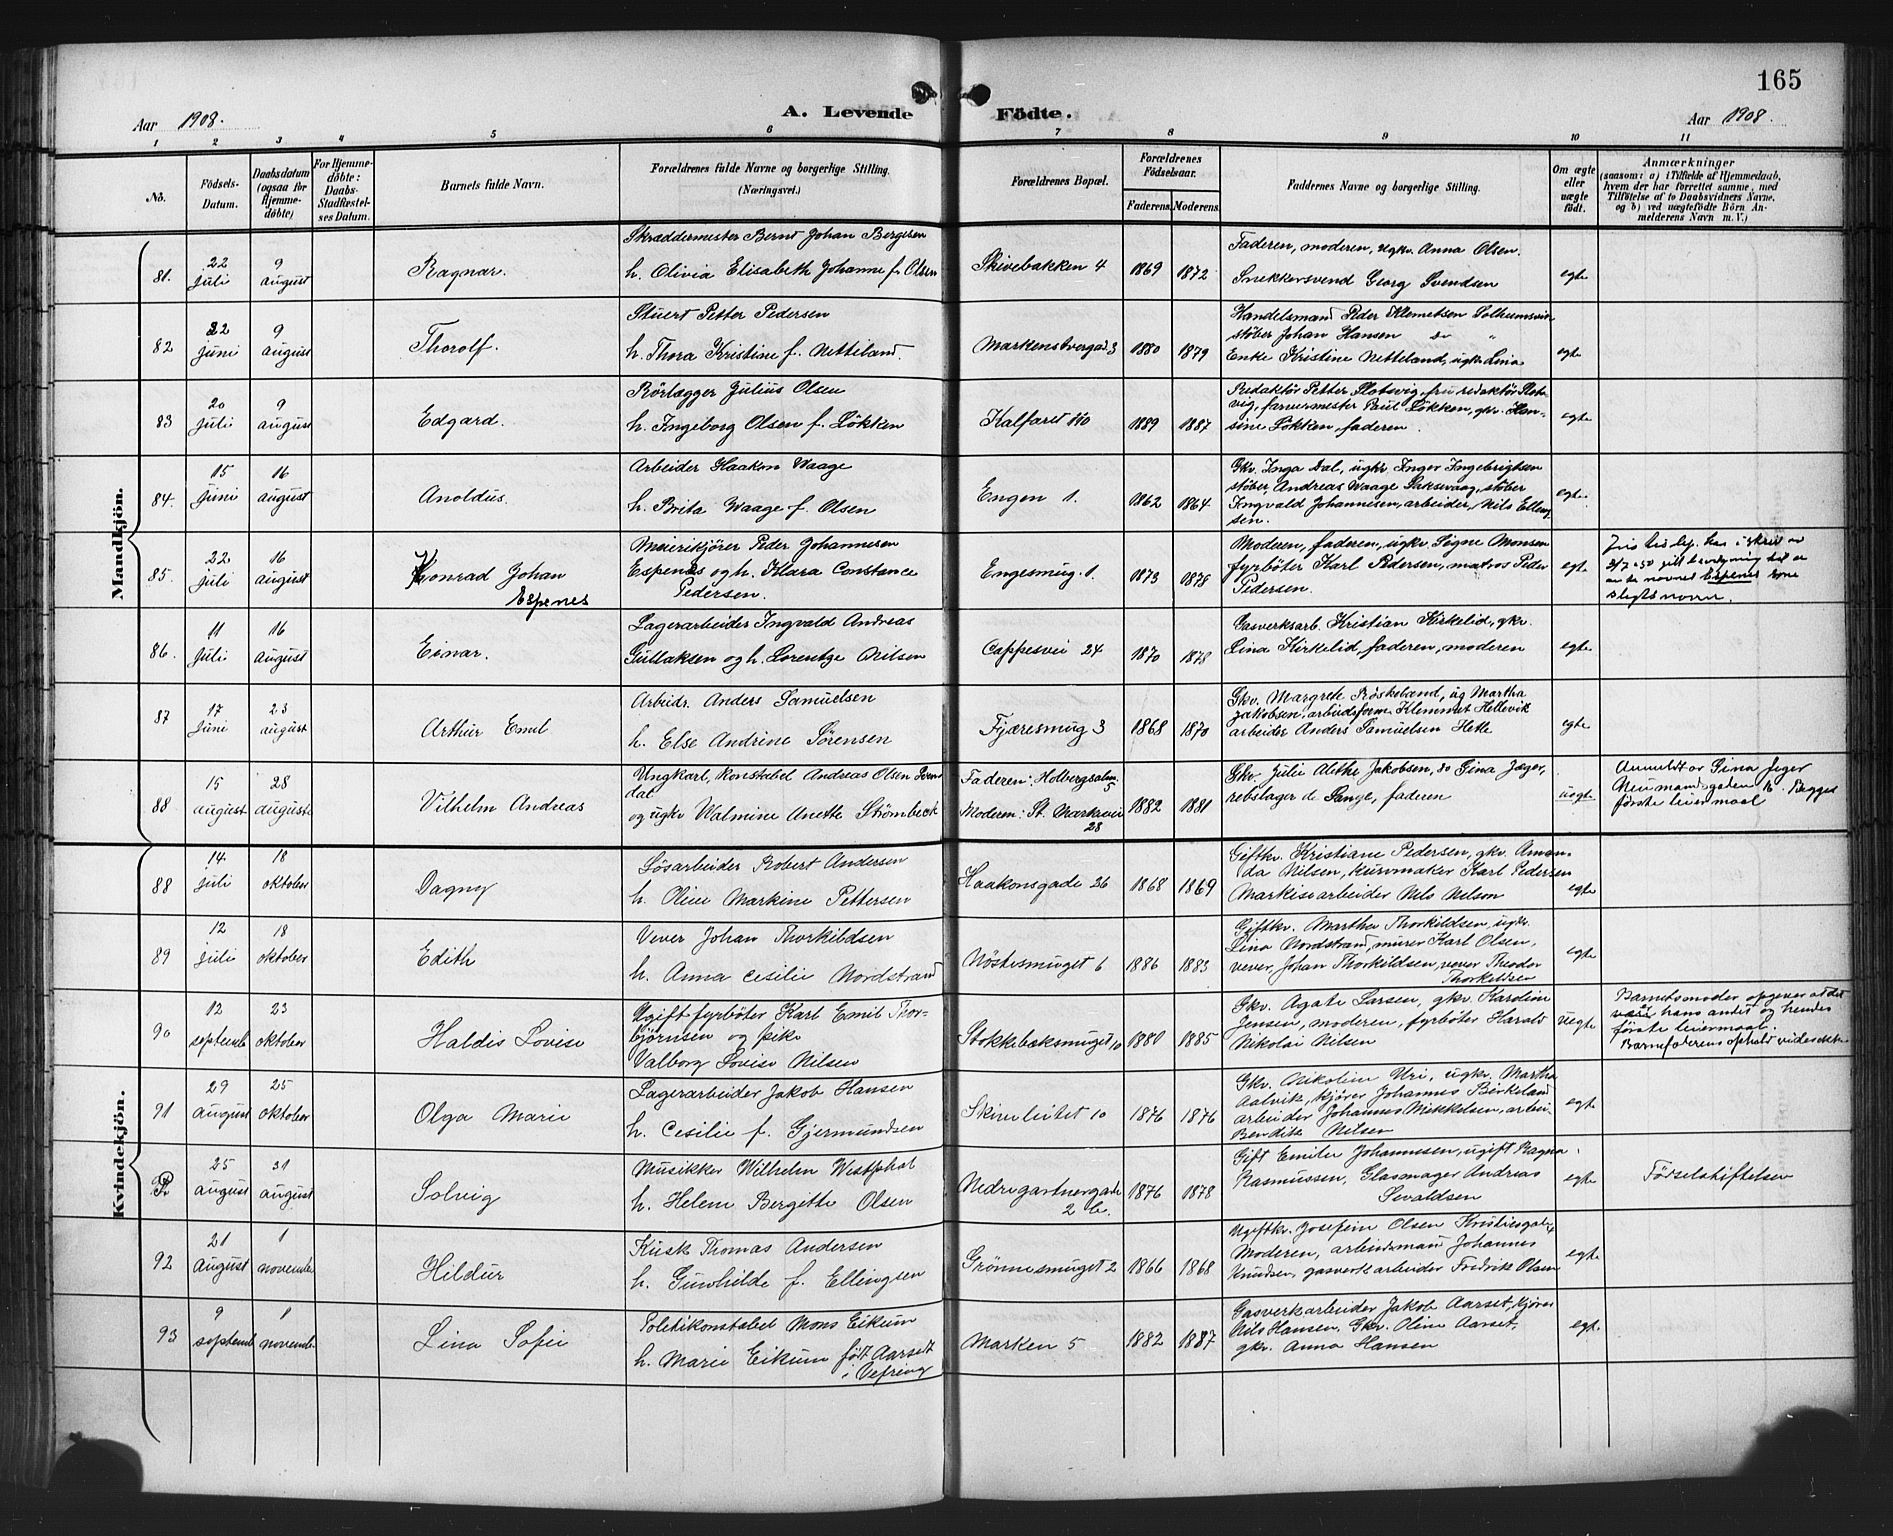 165
Aar 1908.
A. Levende Födte.
Aar 1908.
1 2 3 4 5 6 7 8 9 10 11
No.
Födsels-Datum.
Daabsdatum (ogsaa for Hjemme-döbte)
For Hjemme-döbte: Daabs-Stadfæstel-ses Datum.
Barnets fulde Navn.
Forældrenes fulde Navne og borgerlige Stilling.
(Næringsvei.)
Forældrenes Bopæl.
Forældrenes Födselsaar.
Faderens. Moderens.
Faddernes Navne og borgerlige Stilling.
Om ægte eller uægte födt.
Anmærkninger
(saasom: a) i Tilfælde af Hjemmedaab, hvem der har forrettet samme, med Tilföielse af to Daabsvidners Navne, og b) ved uægtefödte Börn An-melderens Navn m. V.)
Mandkjön.
81. 22 juli 9 august Ragnar.
Skræddermester Bernt Johan Bergesen
h. Olivia Elisabeth Johanne f. Olsen
Skivebakken 4 1869 1872
Faderen, moderen, ugkv. Anna Olsen.
Snekkersvend Georg Svendsen
egte
82 22 juni 9 august Thorolf.
Stuert Petter Pedersen
h. Thora Kristine f. Netteland.
Markenstvergad. 3 1880 1879
Handelsmand Peder Klemetsen Solheimsvik
støber Johan Hansen do "
Enke Kristine Netteland, ugkv Lina
egte
83 20 juli 9 august Edgard.
Rörlægger Julius Olsen
h. Ingeborg Olsen f. Løkken
Kalfaret 110 1889 1887
Redaktør Petter Slotsvig, fru redaktør Slots-
vig, farvermester Paul Løkken, gkv. Han-
sine Løkken, faderen.
egte
84. 15 juni 16 august Anoldus.
Arbeider Haakon Waage
h. Brita Waage f. Olsen
Engen 1. 1862 1864
Gkv. Inga Dal, ugkv. Inger Ingebrigtsen
støber, Andreas Waage Laksevaag, støber
Ingvald Johannesen, arbeider, Nils Elling-
sen.
egte
85. 22 juli 16 august Konrad Johan
Espenes
Meierikjører Peder Johannesen
Espenes og h. Klara Constance
Pedersen.
Engesmug. 1. 1873 1878
Moderen, faderen, ugkv. Signe Monsen
fyrbøter Karl Pedersen, matros Peder
Pedersen.
egte
Justisdep. har i skriv av
Espenes som
slegtsnavn.
86. 11 juli 16 august Einar.
Lagerarbeider Ingvald Andreas
Gullaksen og h. Lorentze Nilsen
Cappesvei 24 1870 1878
Gasverksarb. Kristian Kirkelid, gkv.
Lina Kirkelid, faderen, moderen
egte
87 17 juni 23 august Arthur Emil
Arbeidr. Anders Samuelsen
h. Else Andrine Sørensen
Fjæresmug 3 1868 1870
Gkv. Margrete Røskeland, ug Martha
Jakobsen, arbeidsform. Klemmet Hellevik
arbeider Anders Samuelsen Hetle
egte
88 15 august 28 august Vilhelm Andreas
Ungkarl, konstabel Andreas Olsen
dal
og ugkv Walmine Anette Strømbeck
Faderen: Holbergsalm. 5
Moderen: St. Markevei 28
1882 1881
Gkv. Julie Alethe Jakobsen, do Gina Jæger,
rebslager de Lange, faderen
uegte
Anmeldt av Gina Jæger
Neumandsgaden. Begges
første leiermaal
Kvindekjön.
88 14 juli 18 oktober Dagny
Løsarbeider Robert Andersen
h. Oline Markine Pettersen
Haakonsgade 26 1868 1869
Giftkv. Kristiane Pedersen, gkv. Aman-
da Nilsen, kurvmaker Karl Pedersen
Markisearbeider Nils Nilson
egte
89 12 juli 18 oktober Edith
Væver Johan Thorkildsen
h. Anna Cesilie Nordstrand
Nøstesmuget 6 1886 1883
Giftkv. Martha Thorkildsen, ugkv.
Lina Nordstrand, murer Karl Olsen,
vever, Johan Thorkildsen, vever Theodor
Thorkildsen
egte
90 12 septemb 23 oktober Haldis Lovise
Ugift fyrbøter Karl Emil Thor-
björnsen og pike
Valborg Lovise Nilsen
Stokkebæksmuget 10 1880 1885
Gkv. Agate Larsen, gkv. Karoline
Jensen, moderen, fyrbøter Harald
Nikolai Nilsen
uegte
Barnetsmoder opgiver at det
være hans andet og hendes
første leiermaal.
Barnefaderens ophold vides ikke
91 29 august 25 oktober Olga Marie
Lagerarbeider Jakob Hansen
h. Cesilie f. Gjermundsen
Skiveleitet 10 1876 1876
Gkv. Nikoline Uri, ugkv. Martha
Aalvik, kjører Johannes Birkeland
arbeider Johannes Mikkelsen, arbei-
Bendik Nilsen
egte
25 august 31 august Solvig
Musikker Wilhelm Westphal
h. Helene Bergitte Olsen
Nedregartnergade 2 b. 1876 1878
Gift Emilie Johannessen, ugift Ragna
Rasmussen, Glasmager Andreas
Sevaldsen
egte
Fødselsstiftelsen
92 21 august 1 novembe Hildur
Kusk Thomas Andersen
h. Gunhilde f. Ellingsen
Grønnesmuget 2 1866 1868
Ugiftkv. Josefine Olsen
Moderen, arbeidsmand Johannes
Knudsen, gasverkarbeider Fredrik Olsen
egte
93 9 septemb 1 novemb. Lina Sofie
Politikonstabel Mons Eikum
h. Marie Eikum født Aarset
i Vefring
Marken 5 1882 1887
Gasverkarbeider Jakob Aarset, kjører
Nils Hansen, Gkv. Oline Aarset,
gkv. Anna Hansen
egte.